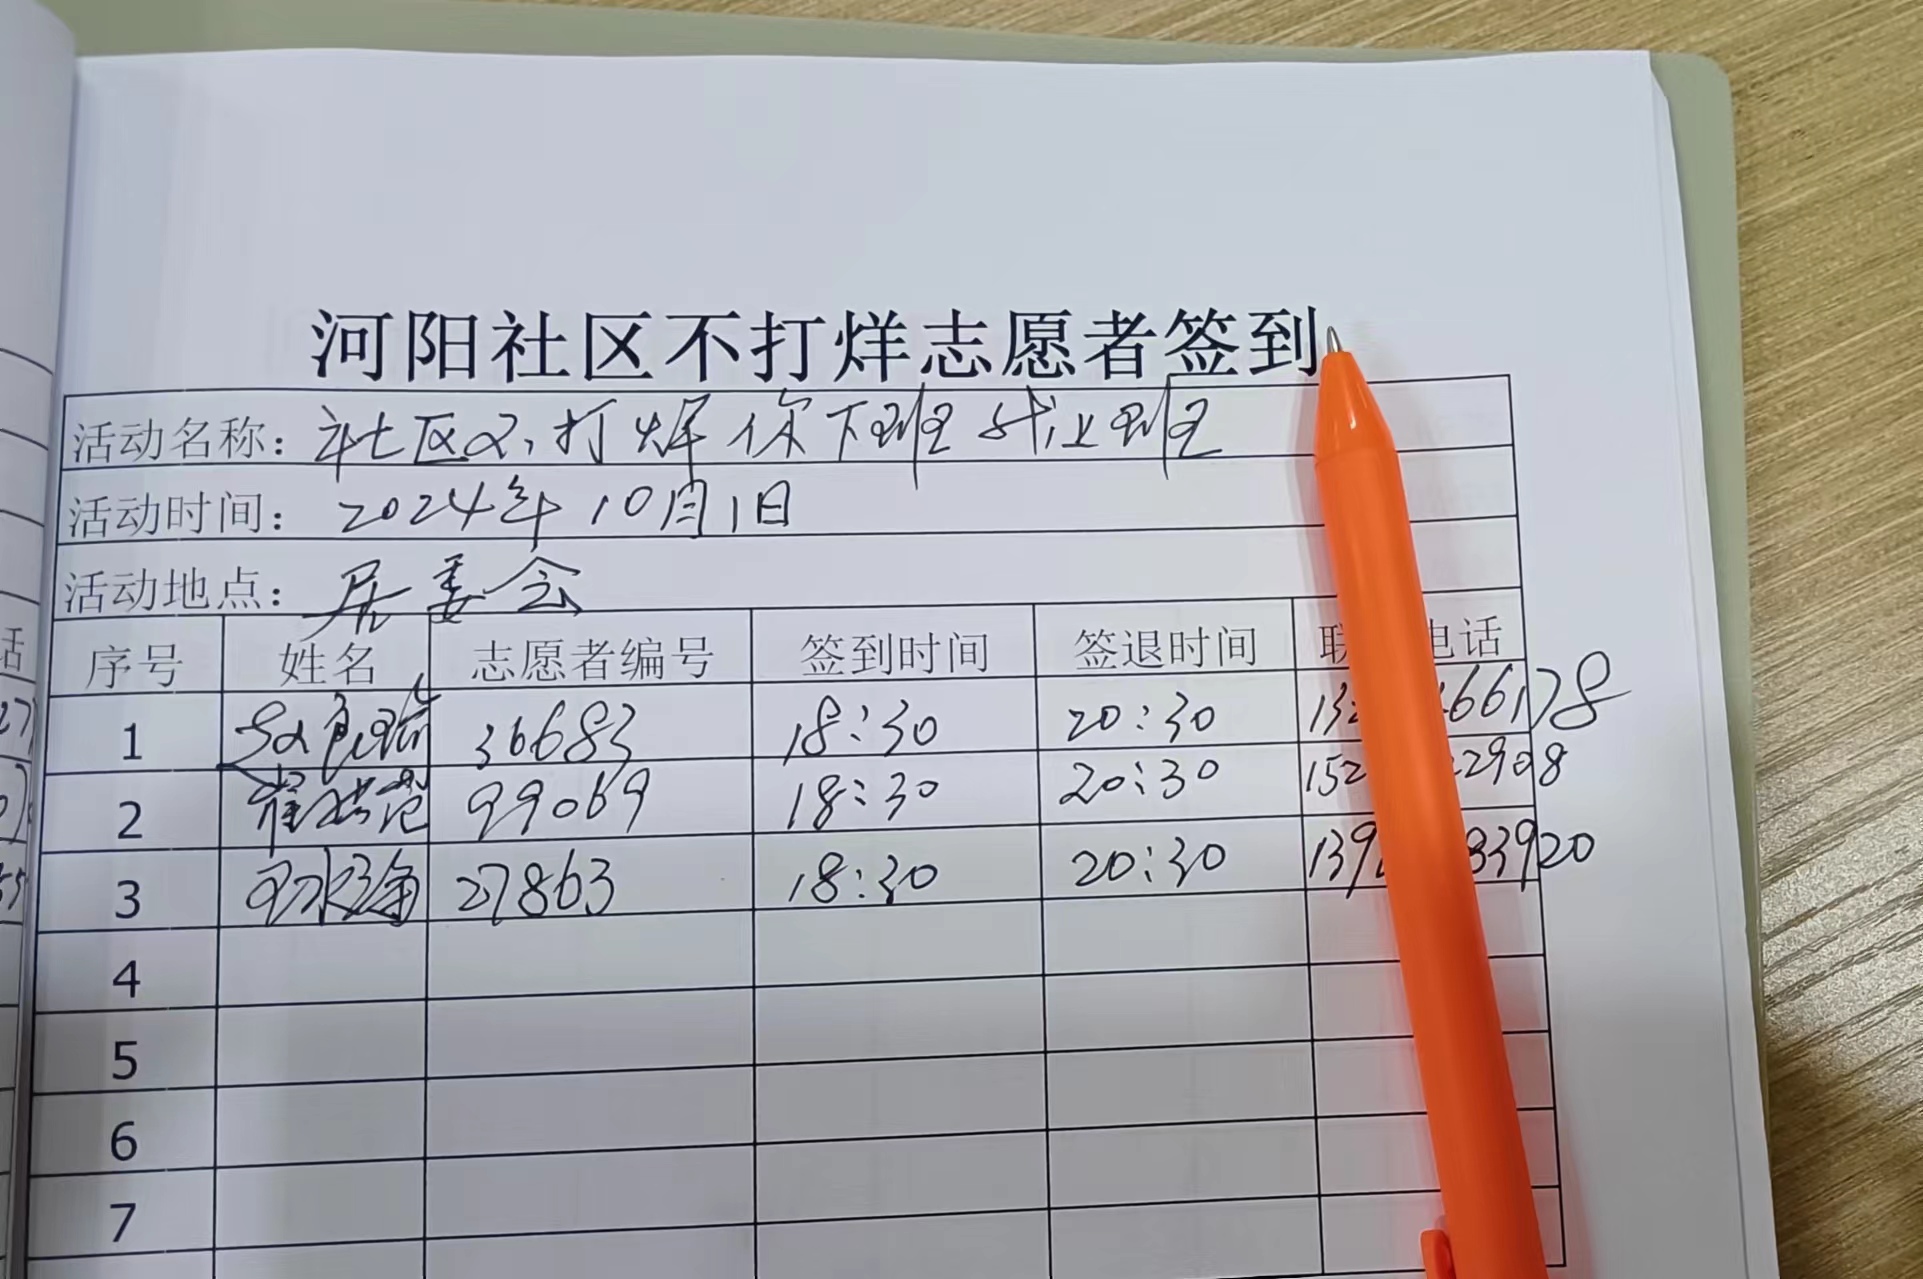 河阳社区不打烊志愿者签到
活动名称：社区不打烊 你下班 我上班
活动时间：2024年10月1日
活动地点：居委会
序号 姓名 志愿者编号 签到时间 签退时间 联 电话
1 36683 18:30 20:30
2 99069 18:30 20:30
3 27863 18:30 20:30
4
5
6
7